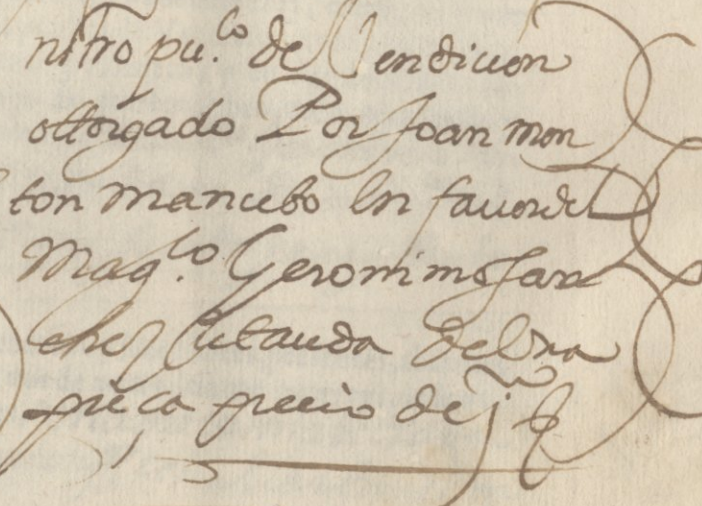 nstro pu.co de Vendicion
ottorgado Por Joan mon
ton mancebo En fauor del
Magco. Geronimo San
chez Cutanda de Una
pieca precio de j